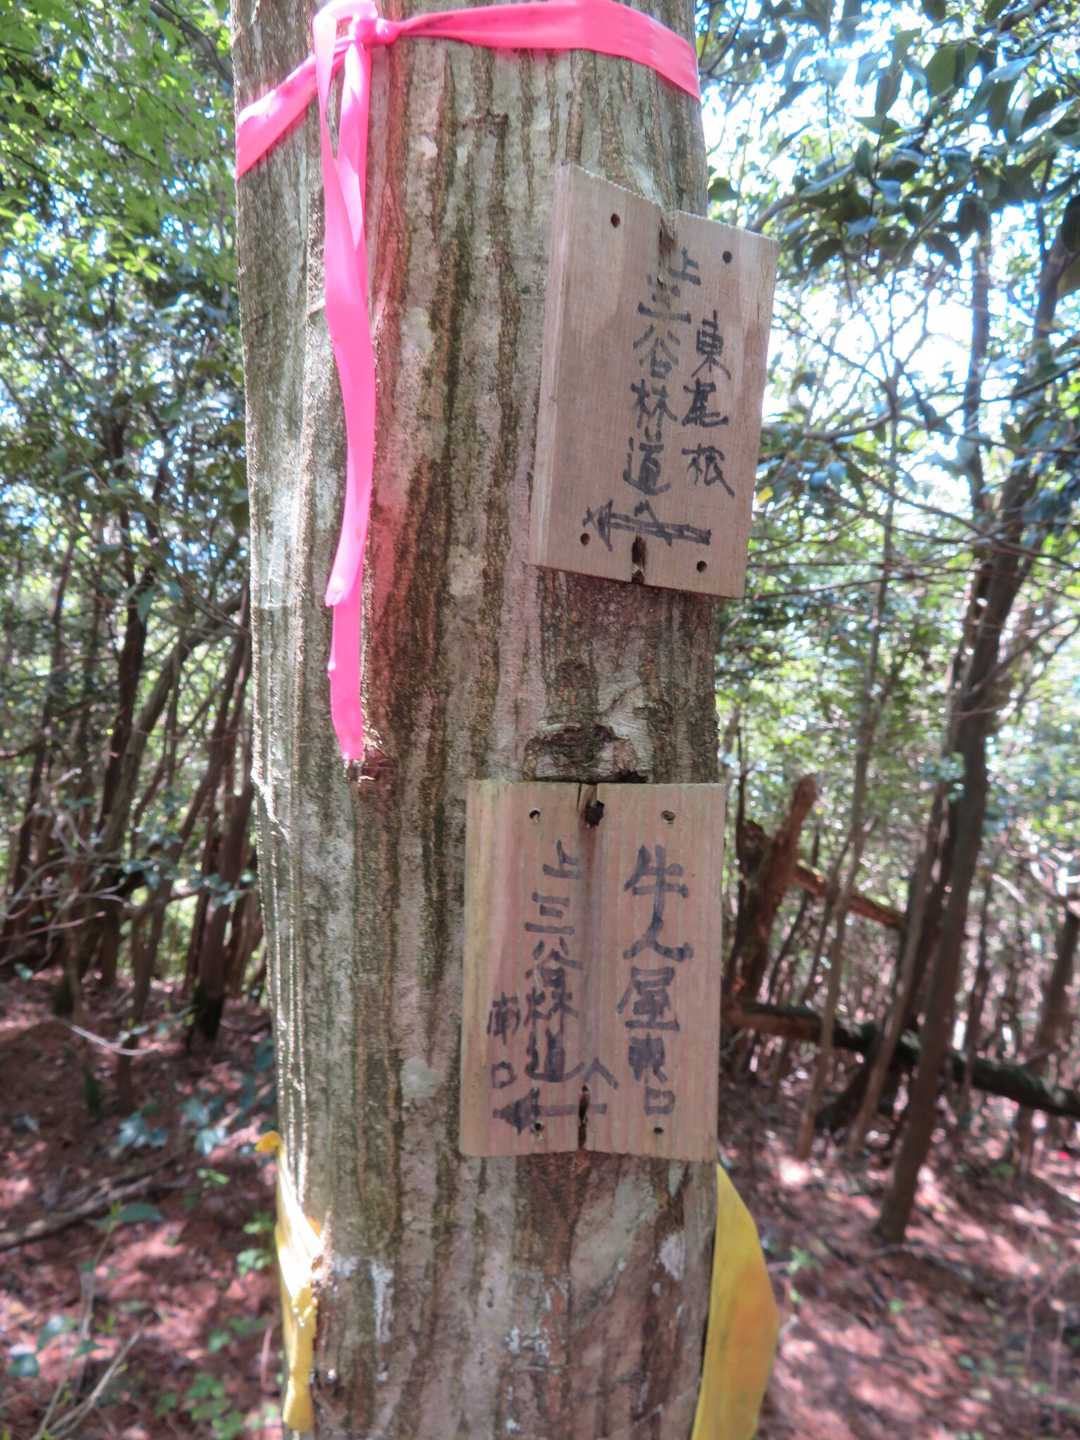 東尾根
上三谷林道へ
牛人屋東口
上三谷林道へ
南口